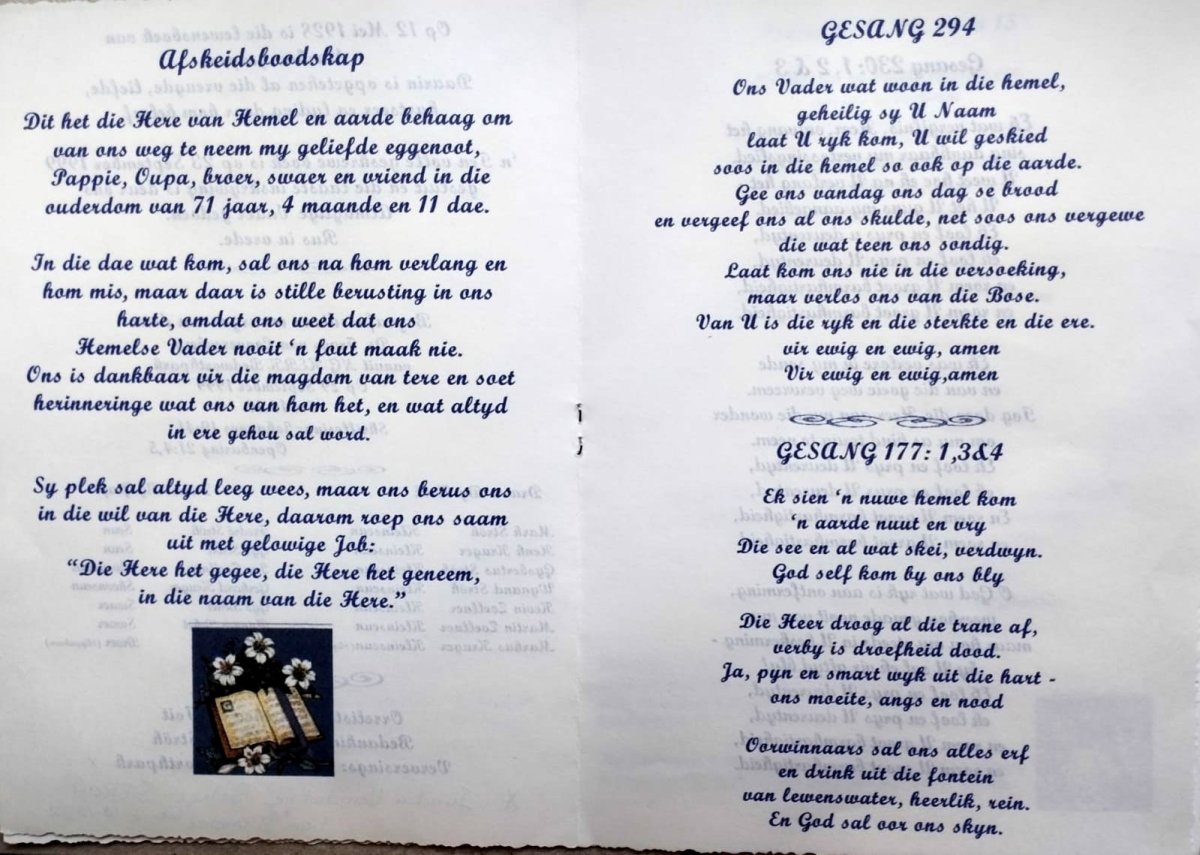 Afskeidsboodskap
Dit het die Here van Hemel en aarde behaag om
van ons weg te neem my geliefde eggenoot,
Pappie, Oupa, broer, swaer en vriend in die
ouderdom van 71 jaar, 4 maande en 11 dae.
In die dae wat kom, sal ons na hom verlang en
hom mis, maar daar is stille berusting in ons
harte, omdat ons weet dat ons
Hemelse Vader nooit 'n fout maak nie.
Ons is dankbaar vir die magdom van tere en soet
herinneringe wat ons van hom het, en wat altyd
in ere gehou sal word.
Sy plek sal altyd leeg wees, maar ons berus ons
in die wil van die Here, daarom roep ons saam
uit met gelowige Job:
"Die Here het gegee, die Here het geneem,
in die naam van die Here."
GESANG 294
Ons Vader wat woon in die hemel,
geheilig sy U Naam
laat U ryk kom, U wil geskied
soos in die hemel so ook op die aarde.
Gee ons vandag ons dag se brood
en vergeef ons al ons skulde, net soos ons vergewe
die wat teen ons sondig.
Laat kom ons nie in die versoeking,
maar verlos ons van die Bose.
Van U is die ryk en die sterkte en die ere.
vir ewig en ewig, amen
Vir ewig en ewig,amen
GESANG 177: 1,3&4
Ek sien 'n nuwe hemel kom
'n aarde nuut en vry
Die see en al wat skei, verdwyn.
God self kom by ons bly
Die Heer droog al die trane af,
verby is droefheid dood.
Ja, pyn en smart wyk uit die hart -
ons moeite, angs en nood
Oorwinnaars sal ons alles erf
en drink uit die fontein
van lewenswater, heerlik, rein.
En God sal oor ons skyn.